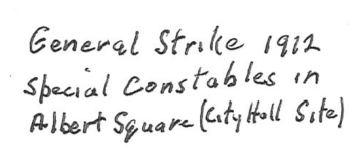 General Strike 1912
Special Constables in
Albert Square (City Hall Site)